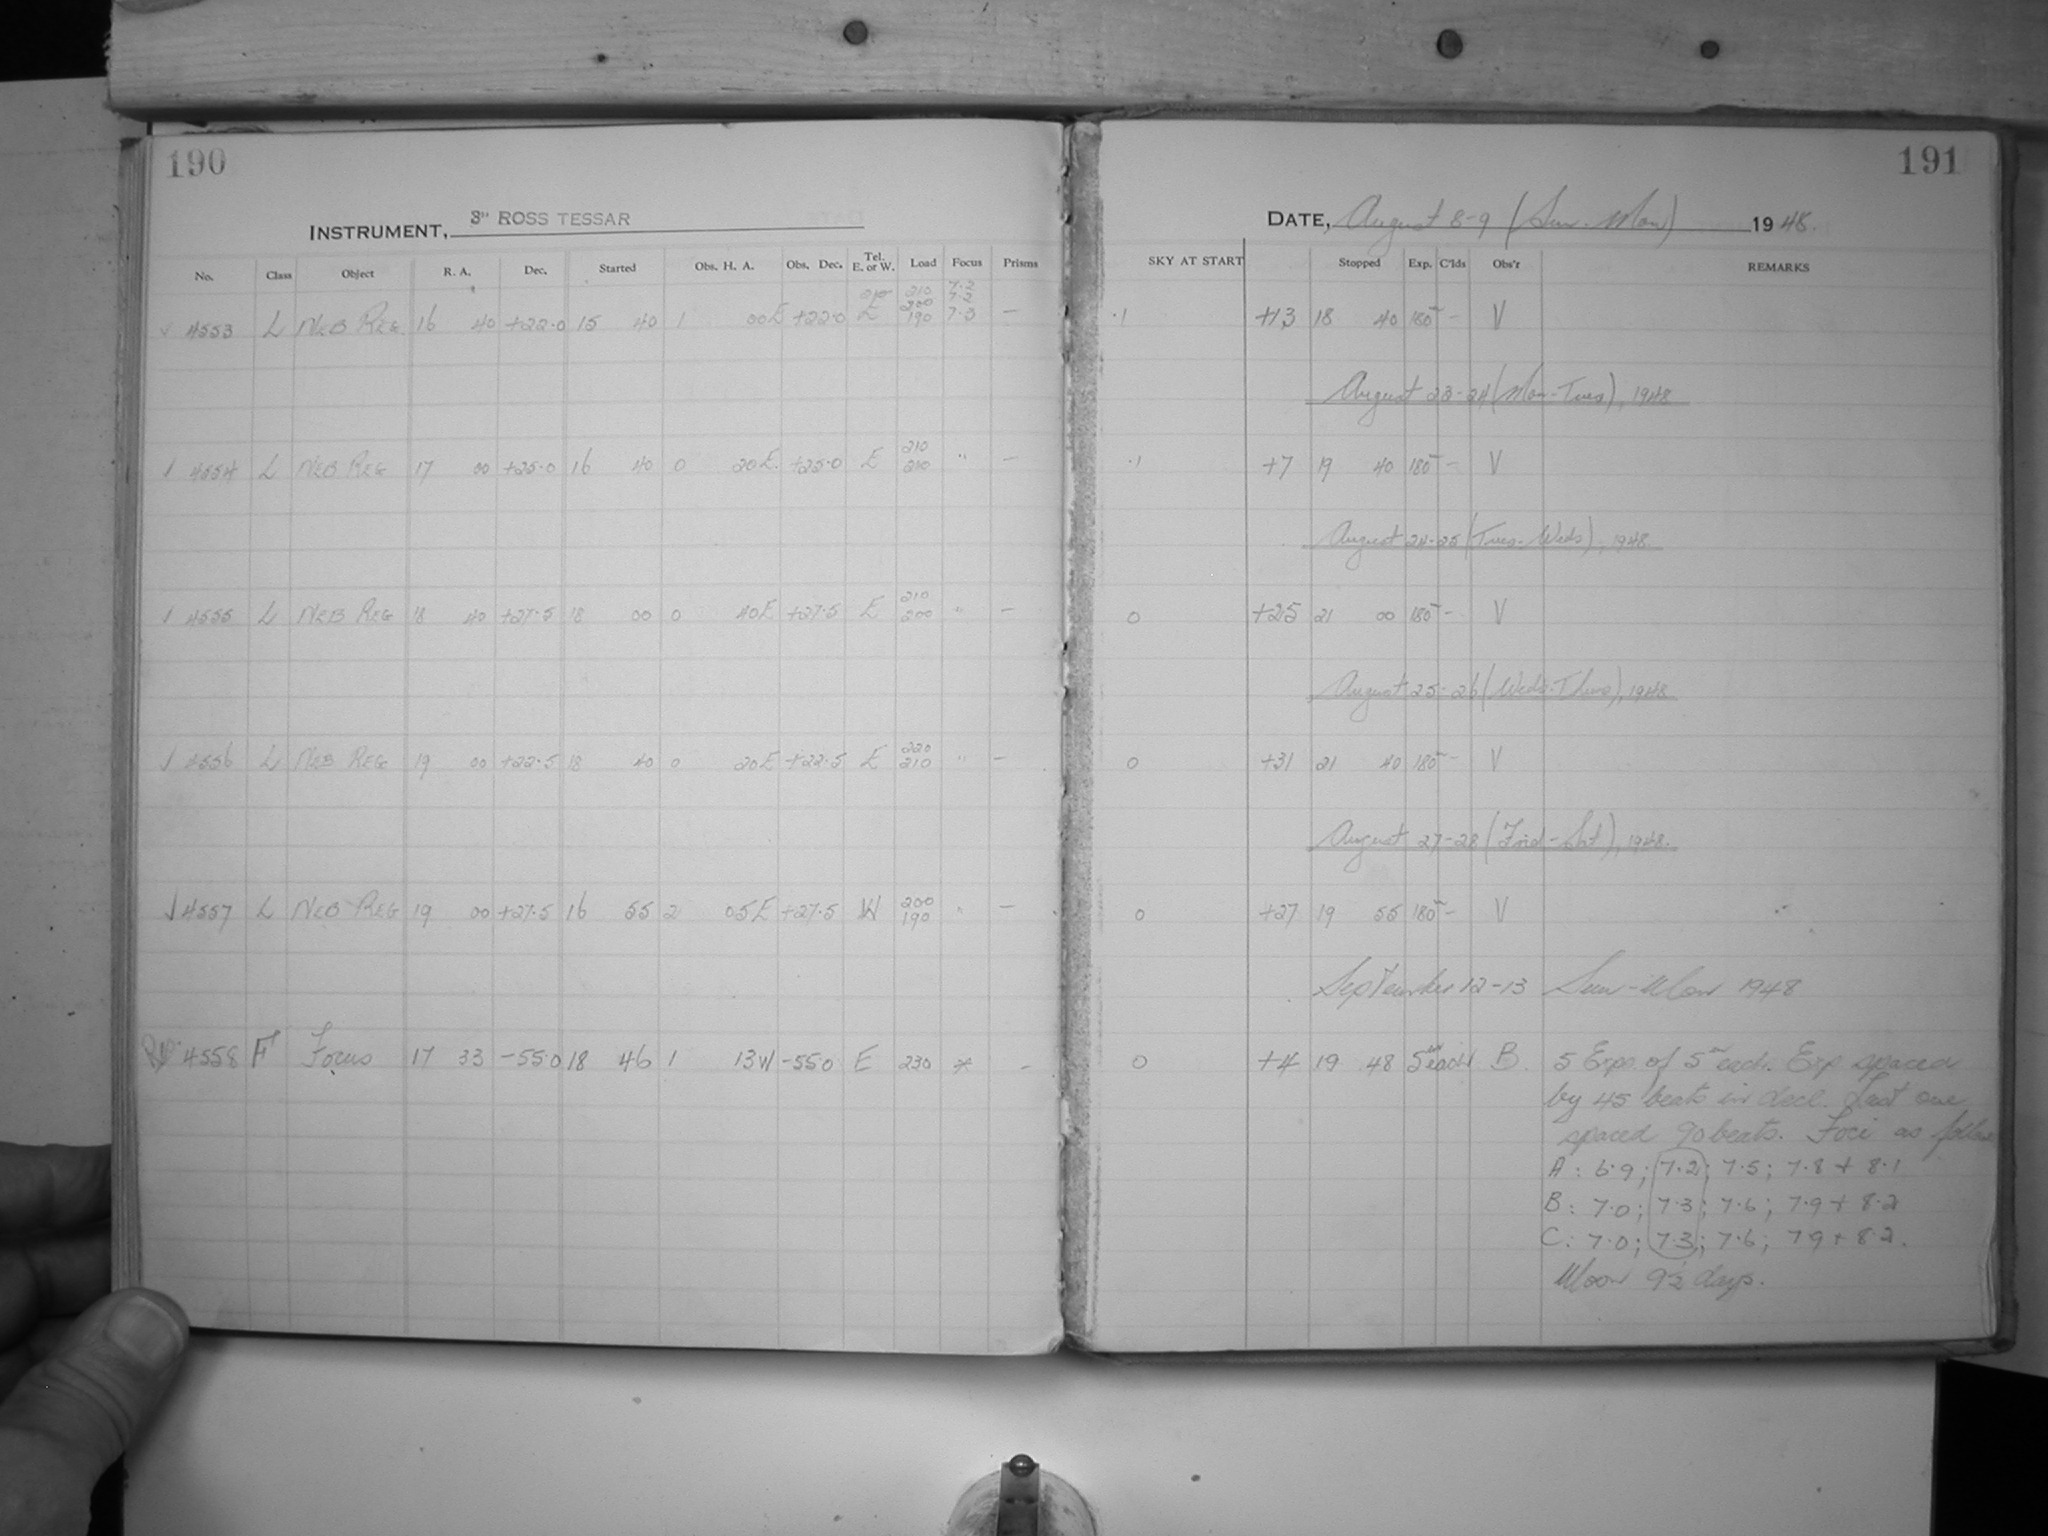 190
INSTRUMENT, 3" ROSS TESSAR
No. Class Object R. A. Dec. Started Obs. H. A. Obs. Dec. Tel. E. or W. Load Focus Prisms
210 7.2
200 7.2
✓ 4553 L NEB REG 16 40 +22.0 15 40 1 00E +22.0 E 190 7.3 –
210
✓ 4554 L NEB REG 17 00 +25.0 16 40 0 20E. +25.0 E " –
210
✓ 4555 L NEB REG 18 40 +27.5 18 00 0 40E +27.5 E 200 " –
220
✓ 4556 L NEB REG 19 00 +22.5 18 40 0 20E +22.5 E 210 " –
200
✓ 4557 L NEB REG 19 00 +27.5 16 55 2 05E +27.5 W 190 " –
4558 F Focus 17 33 -55.0 18 46 1 13W -55.0 E 230 * -
191
DATE, August 8-9 (Sun-Mon) 1948.
SKY AT START Stopped Exp. C'lds Obs'r REMARKS
.1 +13 18 40 180 – V
August 23-24 (Mon-Tues), 1948
.1 +7 19 40 180 – V
August 24-25 (Tues-Weds), 1948
0 +25 21 00 180 – V
August 25-26 (Weds-Thurs), 1948
0 +31 21 40 180 – V
August 27-28 (Frid-Sat), 1948.
0 +27 19 55 180 – V
September 12-13 Sun-Mon 1948
0 +4 19 48 5m each B. 5 Exps. of 5m each. Exp spaced
by 45 beats in decl. Last one
spaced 90 beats. Foci as follow
A: 6.9; 7.2; 7.5; 7.8 + 8.1
B: 7.0; 7.3; 7.6; 7.9 + 8.2
C: 7.0; 7.3; 7.6; 7.9 + 8.2.
Moon 9½ days.